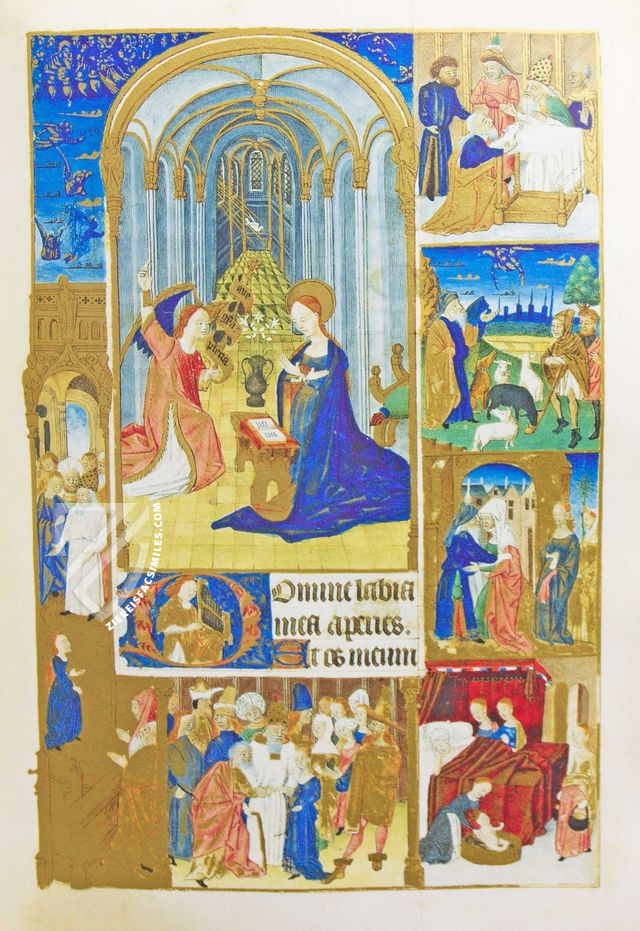 ave
gra
Domine labia
mea aperies.
Et os meum
ZIEREISFACSIMILES.COM